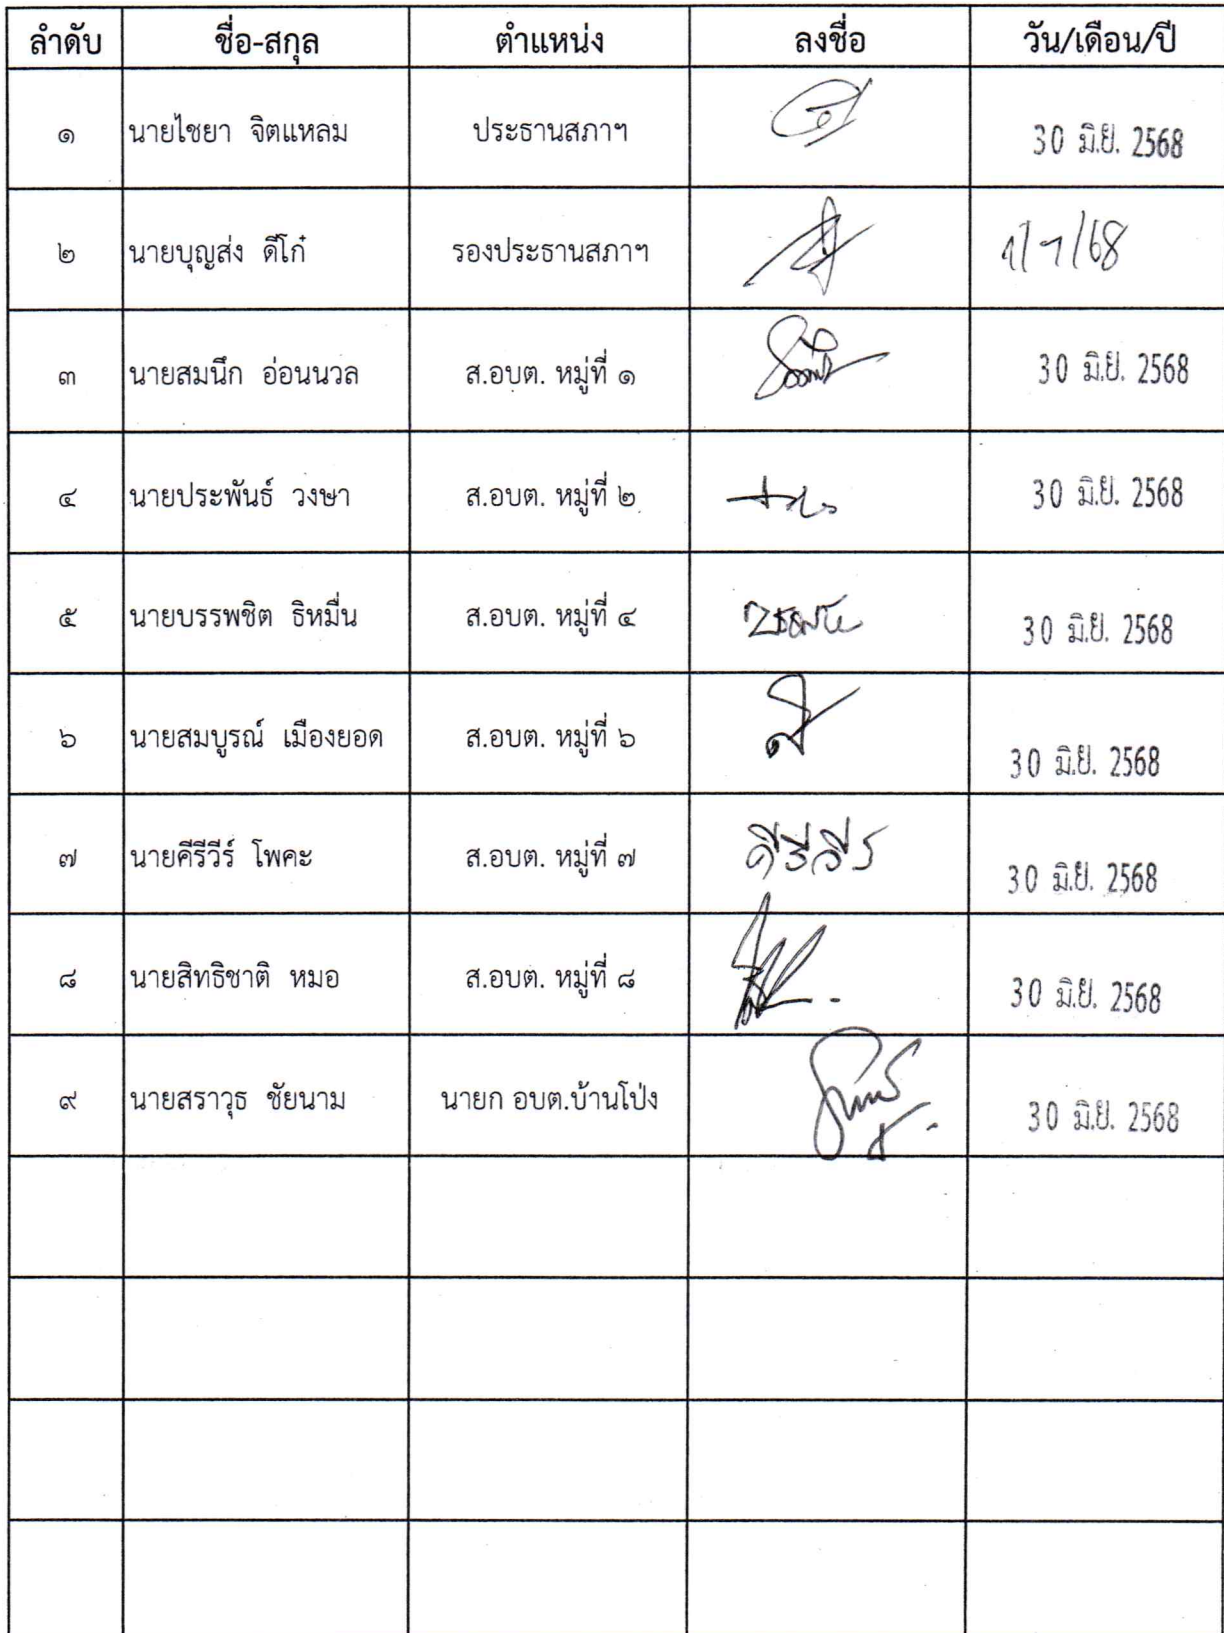 ลำดับ ชื่อ-สกุล ตำแหน่ง ลงชื่อ วัน/เดือน/ปี
๑ นายไชยา จิตแหลม ประธานสภาฯ 30 มิ.ย. 2568
๒ นายบุญส่ง ดีโก๋ รองประธานสภาฯ 1/7/68
๓ นายสมนึก อ่อนนวล ส.อบต. หมู่ที่ ๑ 30 มิ.ย. 2568
๔ นายประพันธ์ วงษา ส.อบต. หมู่ที่ ๒ 30 มิ.ย. 2568
๕ นายบรรพชิต ธิหมื่น ส.อบต. หมู่ที่ ๔ 30 มิ.ย. 2568
๖ นายสมบูรณ์ เมืองยอด ส.อบต. หมู่ที่ ๖ 30 มิ.ย. 2568
๗ นายคีรีวีร์ โพคะ ส.อบต. หมู่ที่ ๗ คีรีวีร์ 30 มิ.ย. 2568
๘ นายสิทธิชาติ หมอ ส.อบต. หมู่ที่ ๘ 30 มิ.ย. 2568
๙ นายสราวุธ ชัยนาม นายก อบต.บ้านโป่ง 30 มิ.ย. 2568